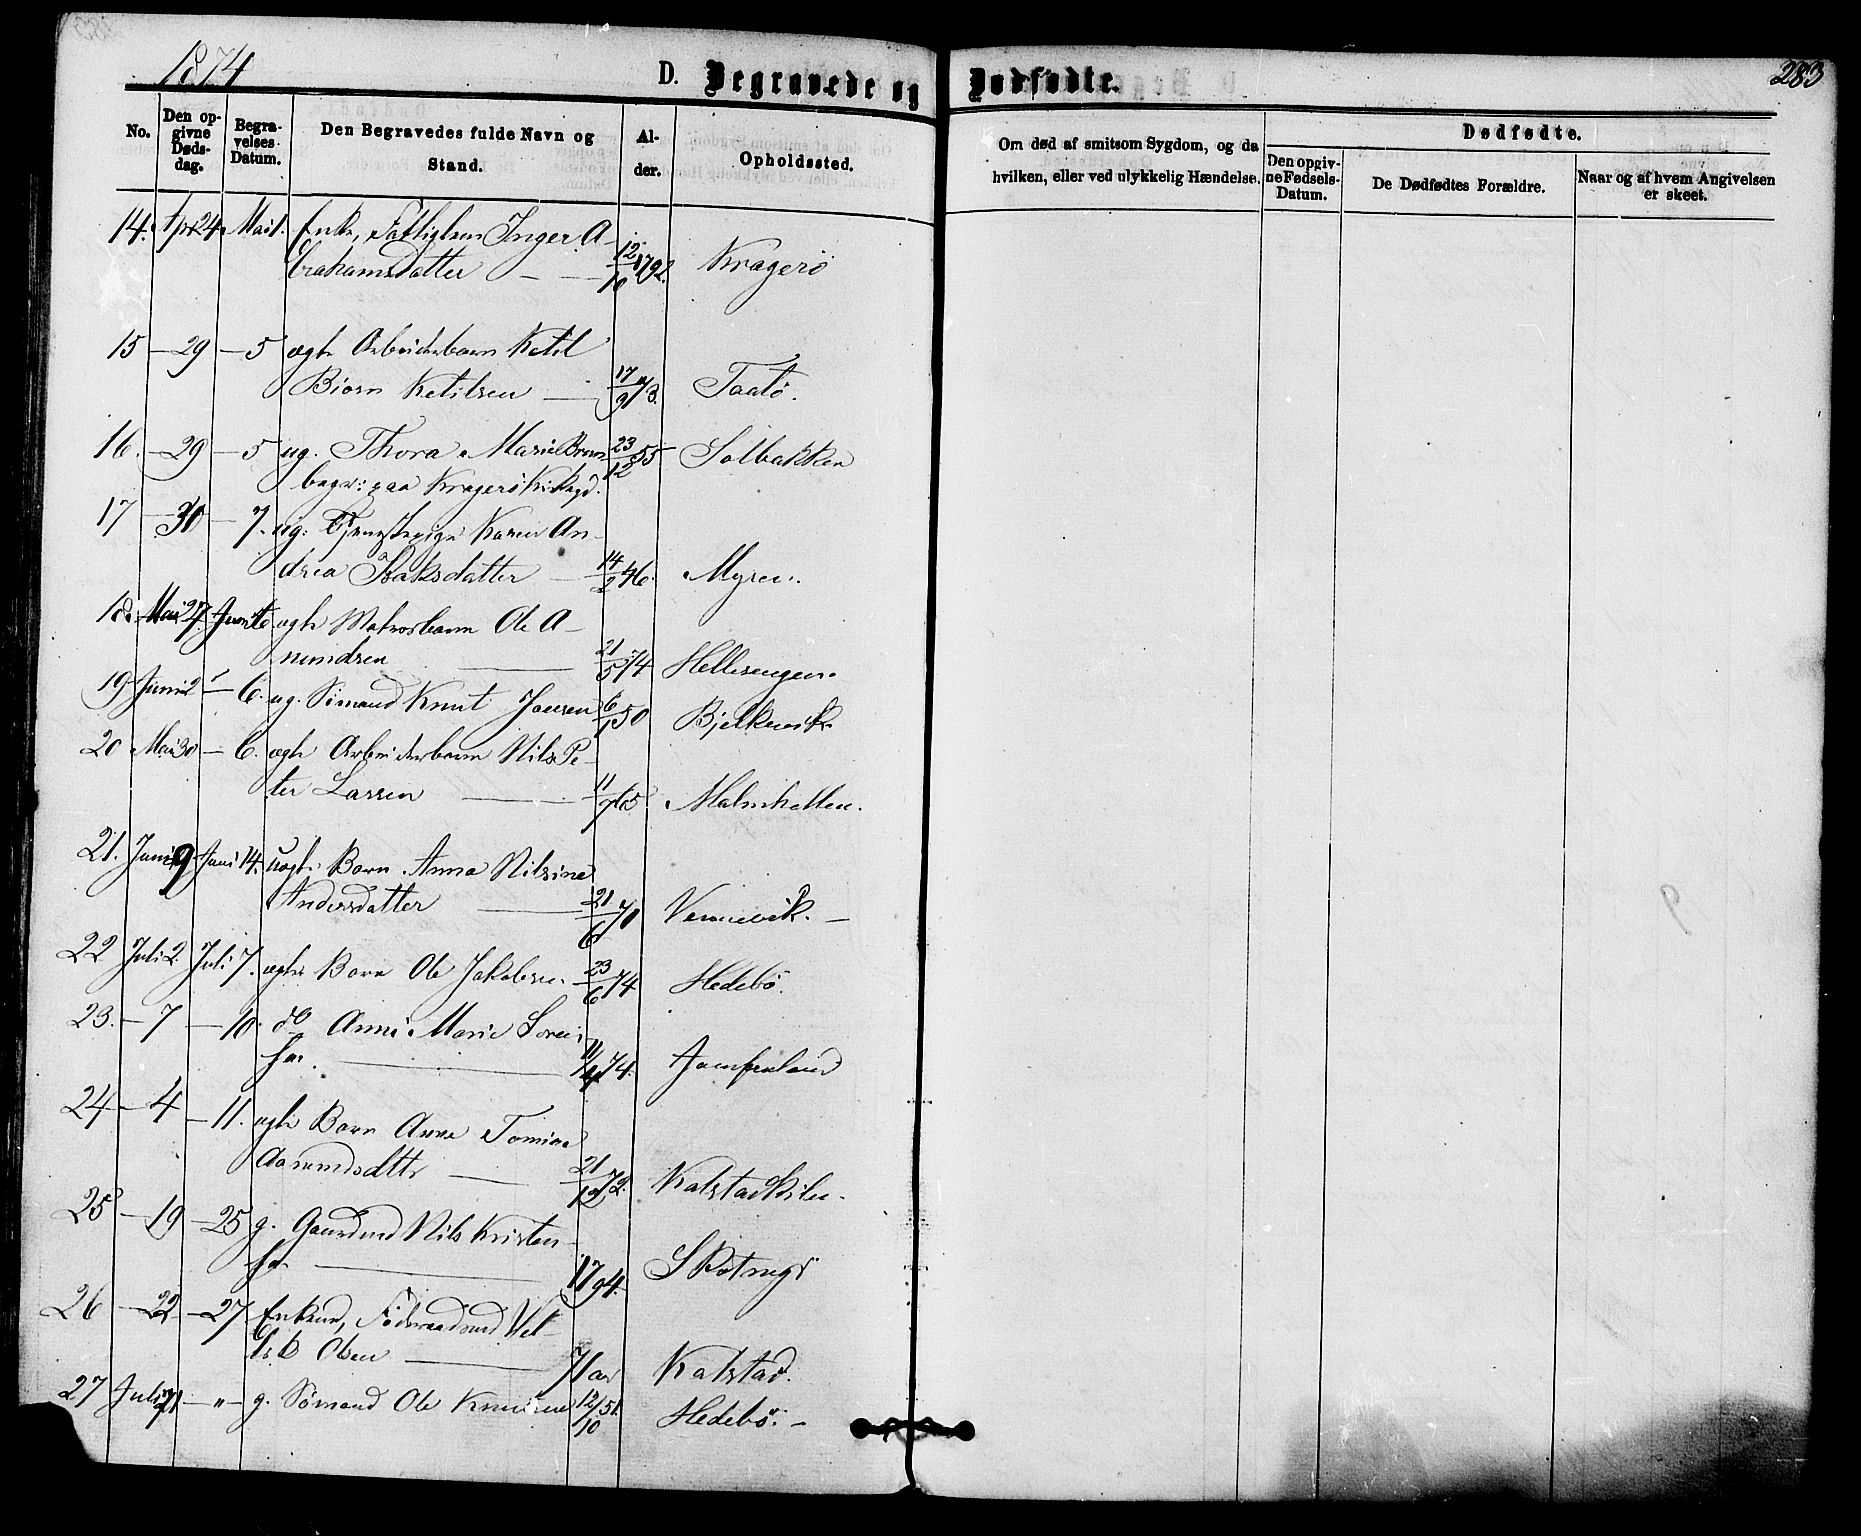 1874
D. Begravede og Dødfødte.
283
No.
Den opgivne Dødsdag.
Begravelses-Datum.
Den Begravedes fulde Navn og Stand.
Alder.
Opholdssted.
Om død af smitsom Sygdom, og da hvilken, eller ved ulykkelig Hændelse.
Dødfødte.
Den opgivne Fødsels-Datum.
De Dødfødtes Forældre.
Naar og af hvem Angivelsen er skeet.
14. Apr 24 Mai 1. Enke, Inger A-
brahamsdatter — 12/10 1792. Kragerø
15 — 29 — 5 ægte Arbeiderbarn Ketil
Biørn Ketilsen — 17/9 73. Taatø.
16. — 29 — 5 ug. Thora Marie 23/12 55 Solbakken
begr: paa Kragerø
17 — 30 — 7. ug. Tjenestepige Karen An-
drea Isaksdatter — 14/2 46. Myren.
18. Mai 27 Juni 6. ægte Matrosbarn Ole A-
nundsen — 21/5 74 Hellesengen.
19 Juni 2 — 6. ug. Sømand Knut Jansen 6/1 50 Bjelkevik
20 Mai 30 — 6. ægte Arbeiderbarn Nils Pe-
ter Larsen — 11/7 65 Malmhellen.
21. Juni 9 Juni 14. uægte Barn Anna Nilsine
Andersdatter — 21/6 70 Vennevik. —
22 Juli 2. Juli 7. ægte Barn Ole Jakobsen 23/6 74 Hedebø.
23. — 7 — 10. do Anne Marie
— 11/4 74. Jomfruland
24 — 4 — 11. ægte Barn Anne Tomine
Aanundsdttr — 21/12 72. Kalstadkilen.
25 — 19 — 25 g. Gaardmd Nils Kristen-
sen — 1794. Skotnes
26 — 22 — 27 Enkemd, Føderaadsmd
Olsen — 71 aar Kalstad.
27 Juli 21 — " — g. Sømand Ole Knudsen 12/10 51. Hedebø. —